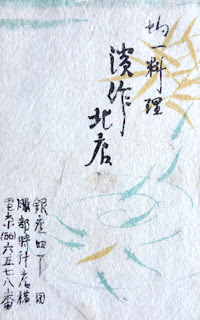 均一料理
濱作北店
銀座四丁目
服部時計店横
電京(56)六五七八番